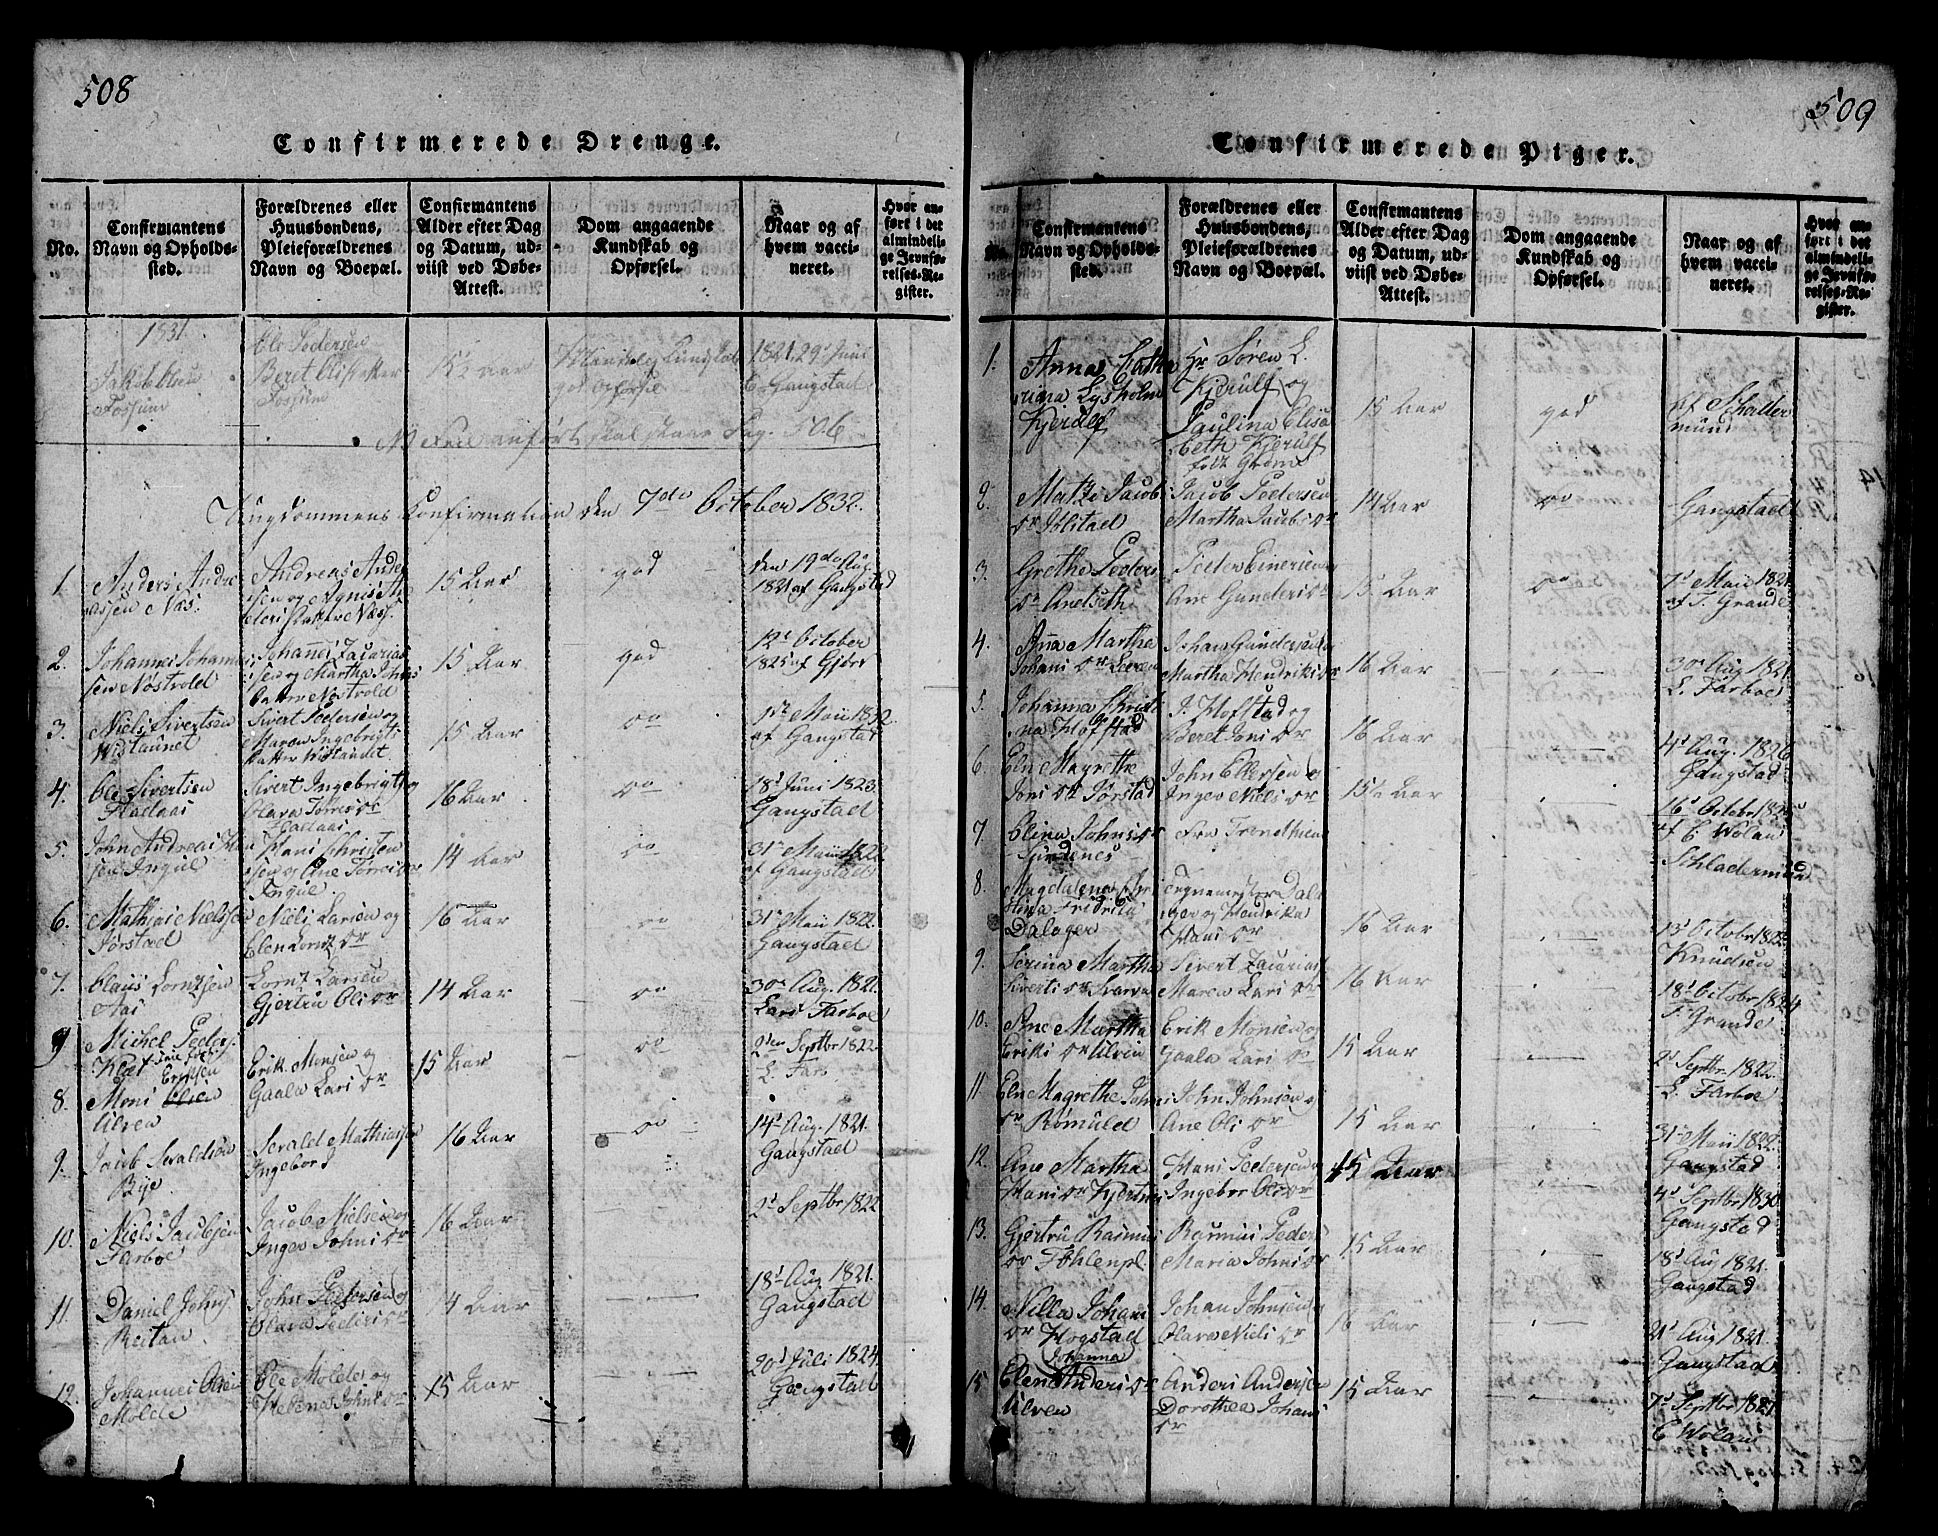 508
Confirmerede Drenge.
No.
Confirmantens
Navn og Opholds-
sted.
Forældrenes eller
Huusbondens,
Pleieforældrenes
Navn og Boepæl.
Confirmantens
Alder efter Dag
og Datum, ud-
viist ved Døbe-
Attest.
Dom angaaende
Kundskab og
Opførsel.
Naar og af
hvem vacci-
neret.
Hvor an-
ført i det
almindeli-
ge Jevnfø-
relses-Re-
gister.
1831
Jakob Olsen
Fossum
Ole Pedersen
Beret
Fossum
15½ aar
Kundskab
god Opførsel
1821 29d Juni
C. Gangstad
anført skal staae Pag. 506
Ungdommens Confirmation den 7de October 1832.
1.
Anders Andre
assen Næs.
Andreas Ander
sen og Agnis An
dersdatter Næss.
15 Aar
god
den 19de Aug.
1821 af Gangstad
2.
Johannes Johanne
sen Nøstvold
Johannes Zacarias
sen og Martha Johns
datter Nøstvold
15 Aar
god
12t October
1825 af Gjørv
3.
Niels Sivertsen
Wistaunet
Sivert Pedersen og
Maren Ingebrigts
datter Wistaunet
15 Aar
do
1st Maii 1832.
af Gangstad
4.
Ole Sivertsen
Fladaas
Sivert Ingebrigts og
Olava Tørres dr
Fladaas
16 Aar
do
18d Juni 1823.
Gangstad
5.
John Andreas Han
sen Ingul
Hans Christen
sen og Ane Tørris dr
Ingul
14 Aar
do
31te Maii 1822
af Gangstad
6.
Mathias Nielssen
Jørstad
Niels Larsen og
Elen Lorntz dr
16 Aar
do
31te Maii 1822.
Gangstad
7.
Claus Lorntzsen
Aas
Lorntz Larsen
Gjertru Ols dr
14 Aar
do
30d Aug. 1821.
Lars Farboe
9
Michel Peders.
do
2den Septbr 1822.
L. Far
8.
Mons Olsen
Ericsen
Ulven
Erik Monsen og
Gaala Lars dr
15 Aar
9.
Jacob Seraldsen
Bye
Serald Mathiasen
Ingebor J
16 Aar
do
14d Aug. 1821.
Gangstad
10.
Niels Jacobsen
Farboe
Jacob Nielsen og
Inger Johns dr
16 Aar
2d Septbr 1822
11.
Daniel Johns.
Reitan
John Petersen og
Olava Peders dr
14 Aar
18d Aug 1821.
Gangstad
12.
Johannes Olsen
Molde
Ole Molde og
Helena Johns dr
15 Aar
20d Juli 1824
Gangstad
509
Confirmerede Piger.
No.
Confirmantens
Navn og Opholds-
sted.
Forældrenes eller
Huusbondens,
Pleieforældrenes
Navn og Boepæl.
Confirmantens
Alder efter Dag
og Datum, ud-
viist ved Døbe-
Attest.
Dom angaaende
Kundskab og
Opførsel.
Naar og af
hvem vacci-
neret.
Hvor an-
ført i det
almindeli-
ge Jevnfø-
relses-Re-
gister.
1.
Anna Catha
rina Lysholm
Kjerulf
Hr Søren L.
Kjerulf og
Paulina Elisa
beth Kjerulf
født
15 Aar
god
af Schaller
mund
2.
Jacobs
dr Jølstad
Jacob Pedersen
Martha Jacobs dr
14 Aar
do
Gangstad
3.
Grethe Peders
dr Anelseth
Peder Einersen
Ane Gunders dr
15 Aar
do
7d Maii 1821.
af T. Grande
4.
Ana Martha
Johans dr
Johan Gundersen og
Martha Hendriks dr
16 Aar
30d Aug 1821
L. Farboe
5.
Johanna Christi
na Hofstad
J. Hofstad og
Beret Jons dr
16 Aar
4d Aug. 1826
Gangstad
6.
Elne Magrethe
Jons dr Jørstad
John Ellefsen og
Inger Niels dr
15½ Aar
16d Octobr
af E Wolan
7.
Elina Johns dr
Fra Trondhiem
8.
Magdalena Chri
stina Fridrika
Dalager
Tegnemester Dala
ger og Hendrika
Hans dr
16 Aar
13d Octobr 1822
Knudsen
9.
Serina Martha
Siverts dr
Sivert Zacarias
Maren Lars dr
16 Aar
18d Octobr 1824
F. Grande
10.
Ane Martha
Eriks dr Ulven
Erik Monsen og
Gaala Lars dr
15 Aar
2d Septbr. 1822.
L. Farboe
11.
Elne Magrethe Johns
dr Rømuld
John Johnsen og
Ane Ols dr
15 Aar
31te Maii 1822.
Gangstad
12.
Ane Martha
Hans dr
Hans Pedersen og
Ingebor Ols dr
15 Aar
4d Septbr 1830
Gangstad
13.
Gjertru Rasmus
dr Føhlenpl.
Rasmus Peders
Maria Johns dr
15 Aar
18d Aug 1821.
Gangstad
14.
Nilla Johans
dr Hogstad
Johan Johnsen og
Olava Niels dr
16 Aar
21d Aug 1821.
Gangstad
15
Johanna
Elen Anders dr
Ulven
Anders Andersen
Dorothea Johans
dr
15 Aar
7d Septbr 1821.
E Wolan